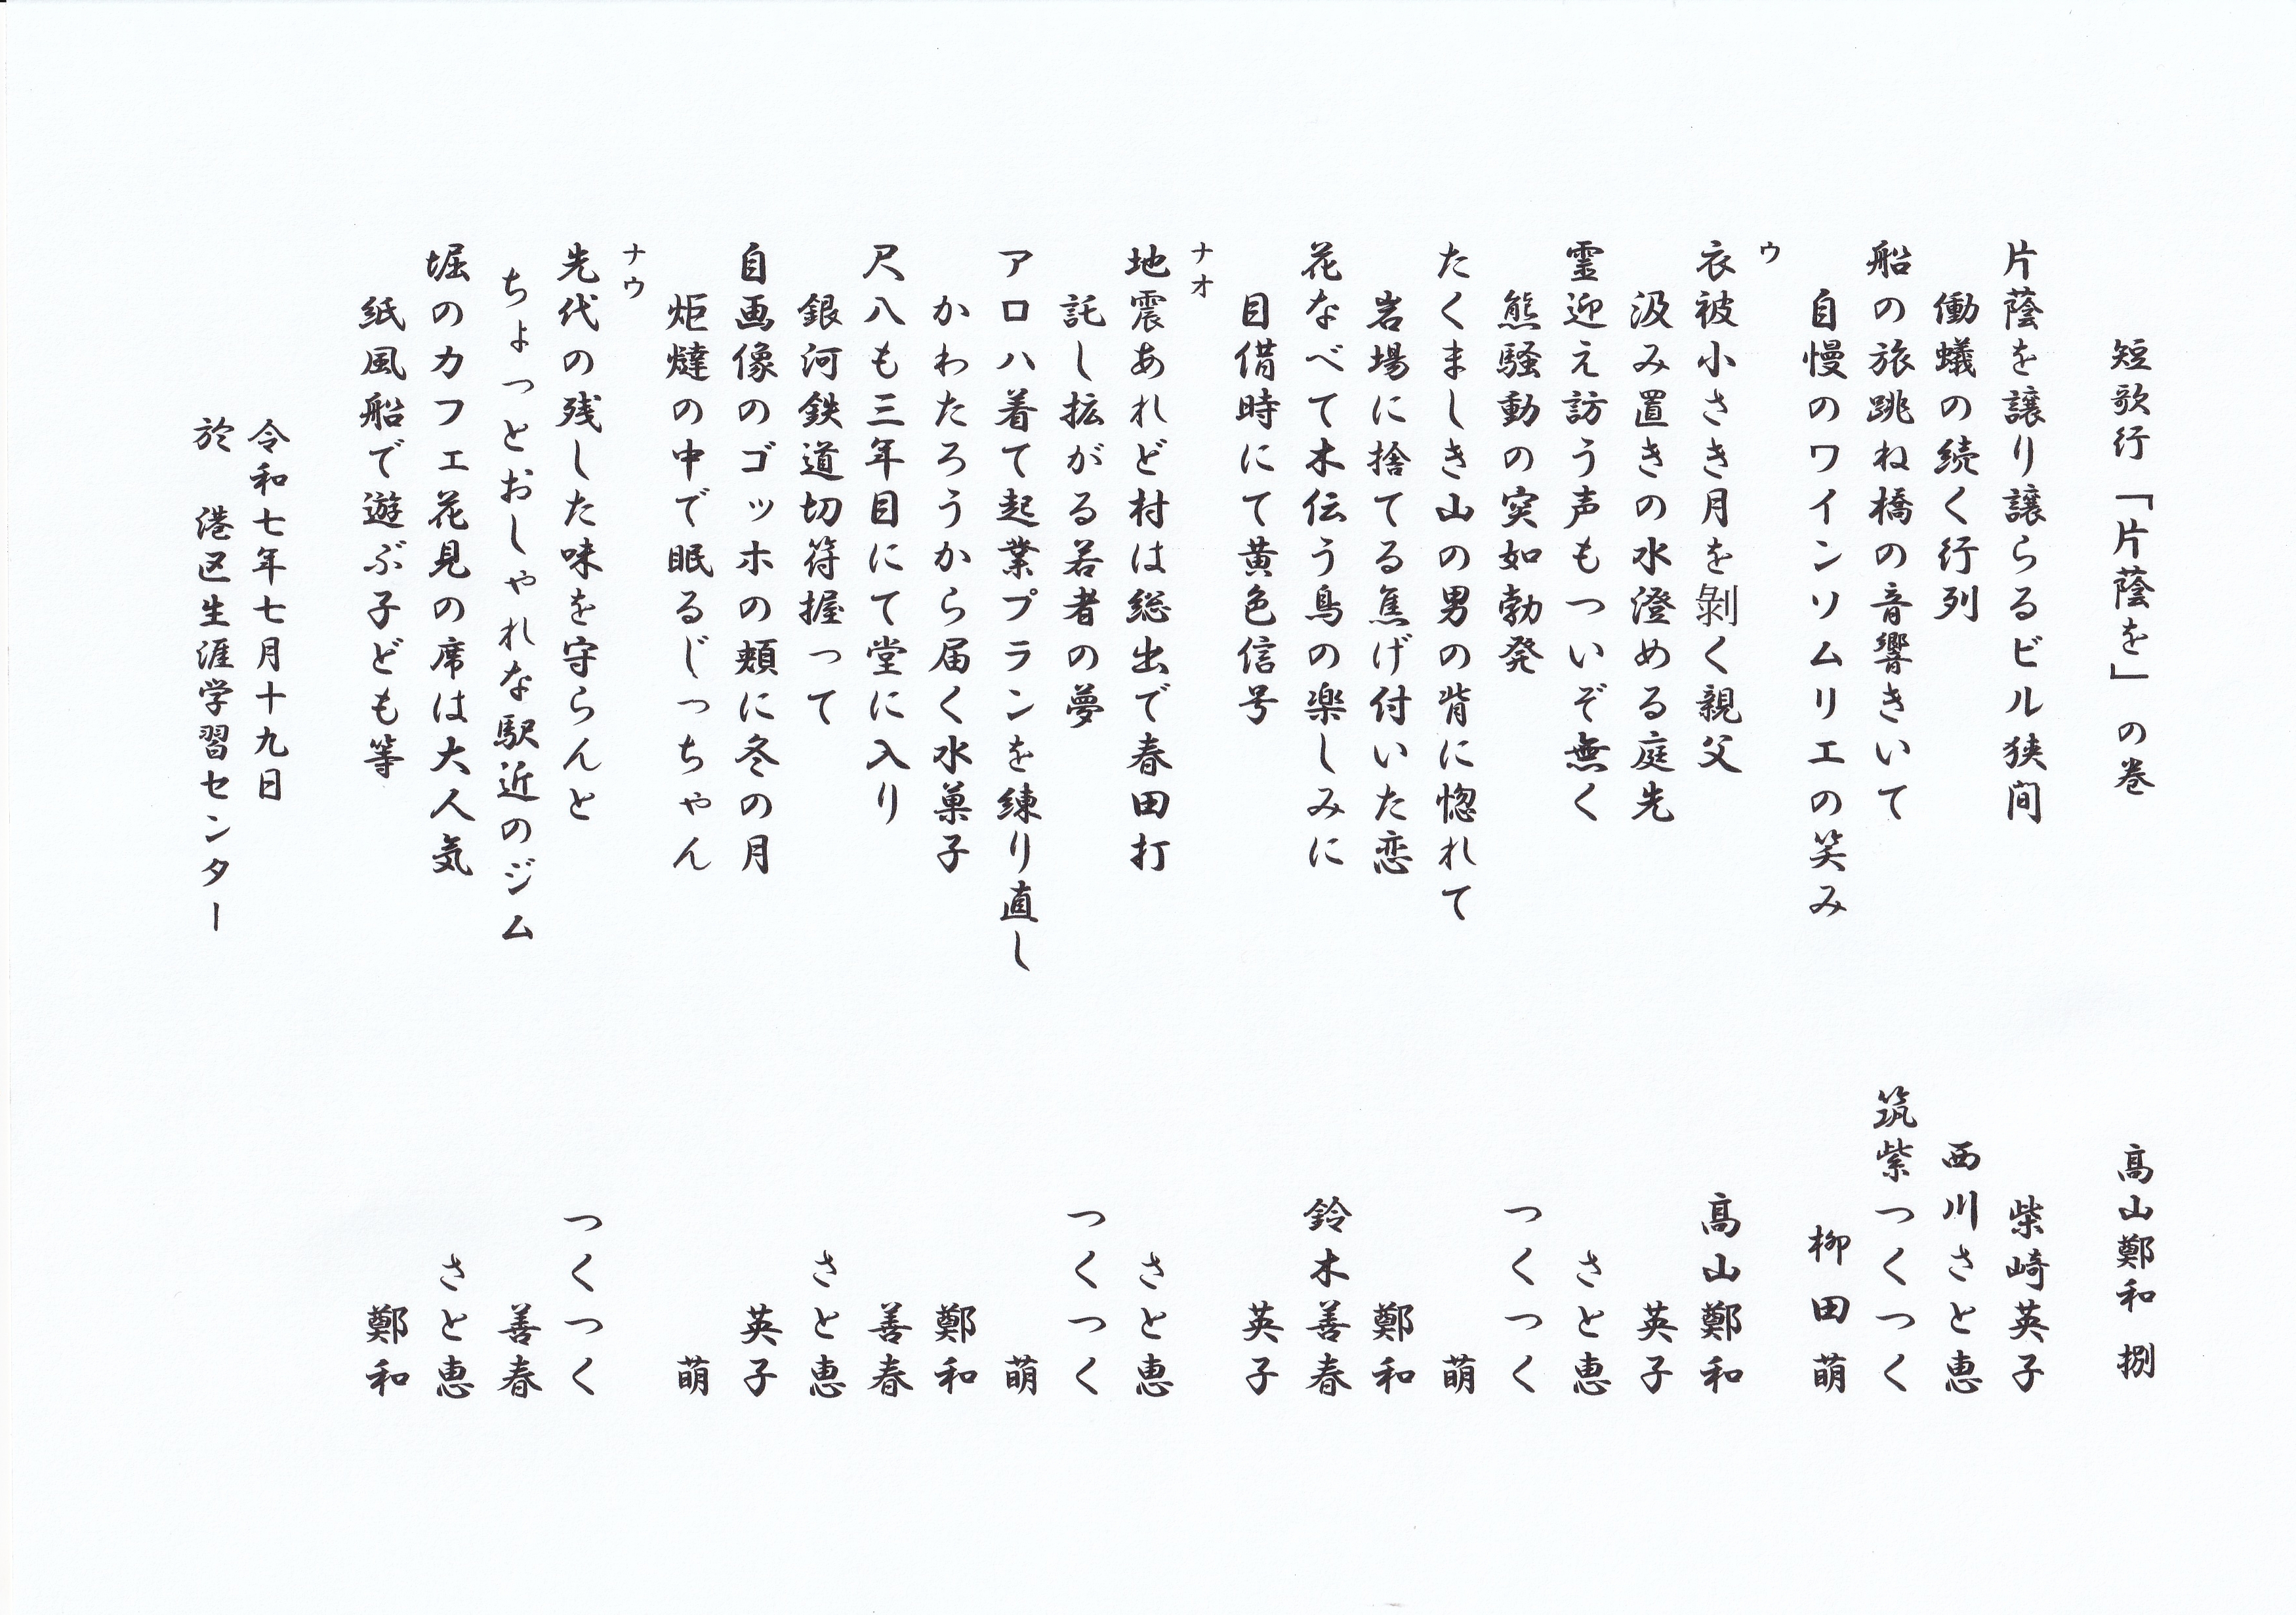 短歌行「片蔭を」の巻　髙山鄭和 捌
片蔭を譲り譲らるビル狭間　柴崎英子
働蟻の続く行列　西川さと恵
船の旅跳ね橋の音響きいて　筑紫つくつく
自慢のワインソムリエの笑み　柳田萌
ウ
衣被小さき月を剝く親父　髙山鄭和
汲み置きの水澄める庭先　英子
霊迎え訪う声もついぞ無く　さと恵
熊騒動の突如勃発　つくつく
たくましき山の男の背に惚れて　萌
岩場に捨てる焦げ付いた恋　鄭和
花なべて木伝う鳥の楽しみに　鈴木善春
目借時にて黄色信号　英子
ナオ
地震あれど村は総出で春田打　さと恵
託し拡がる若者の夢　つくつく
アロハ着て起業プランを練り直し　萌
かわたろうから届く水菓子　鄭和
尺八も三年目にて堂に入り　善春
銀河鉄道切符握って　さと恵
自画像のゴッホの頰に冬の月　英子
炬燵の中で眠るじっちゃん　萌
ナウ
先代の残した味を守らんと　つくつく
ちょっとおしゃれな駅近のジム　善春
堀のカフェ花見の席は大人気　さと恵
紙風船で遊ぶ子ども等　鄭和
令和七年七月十九日
於　港区生涯学習センター